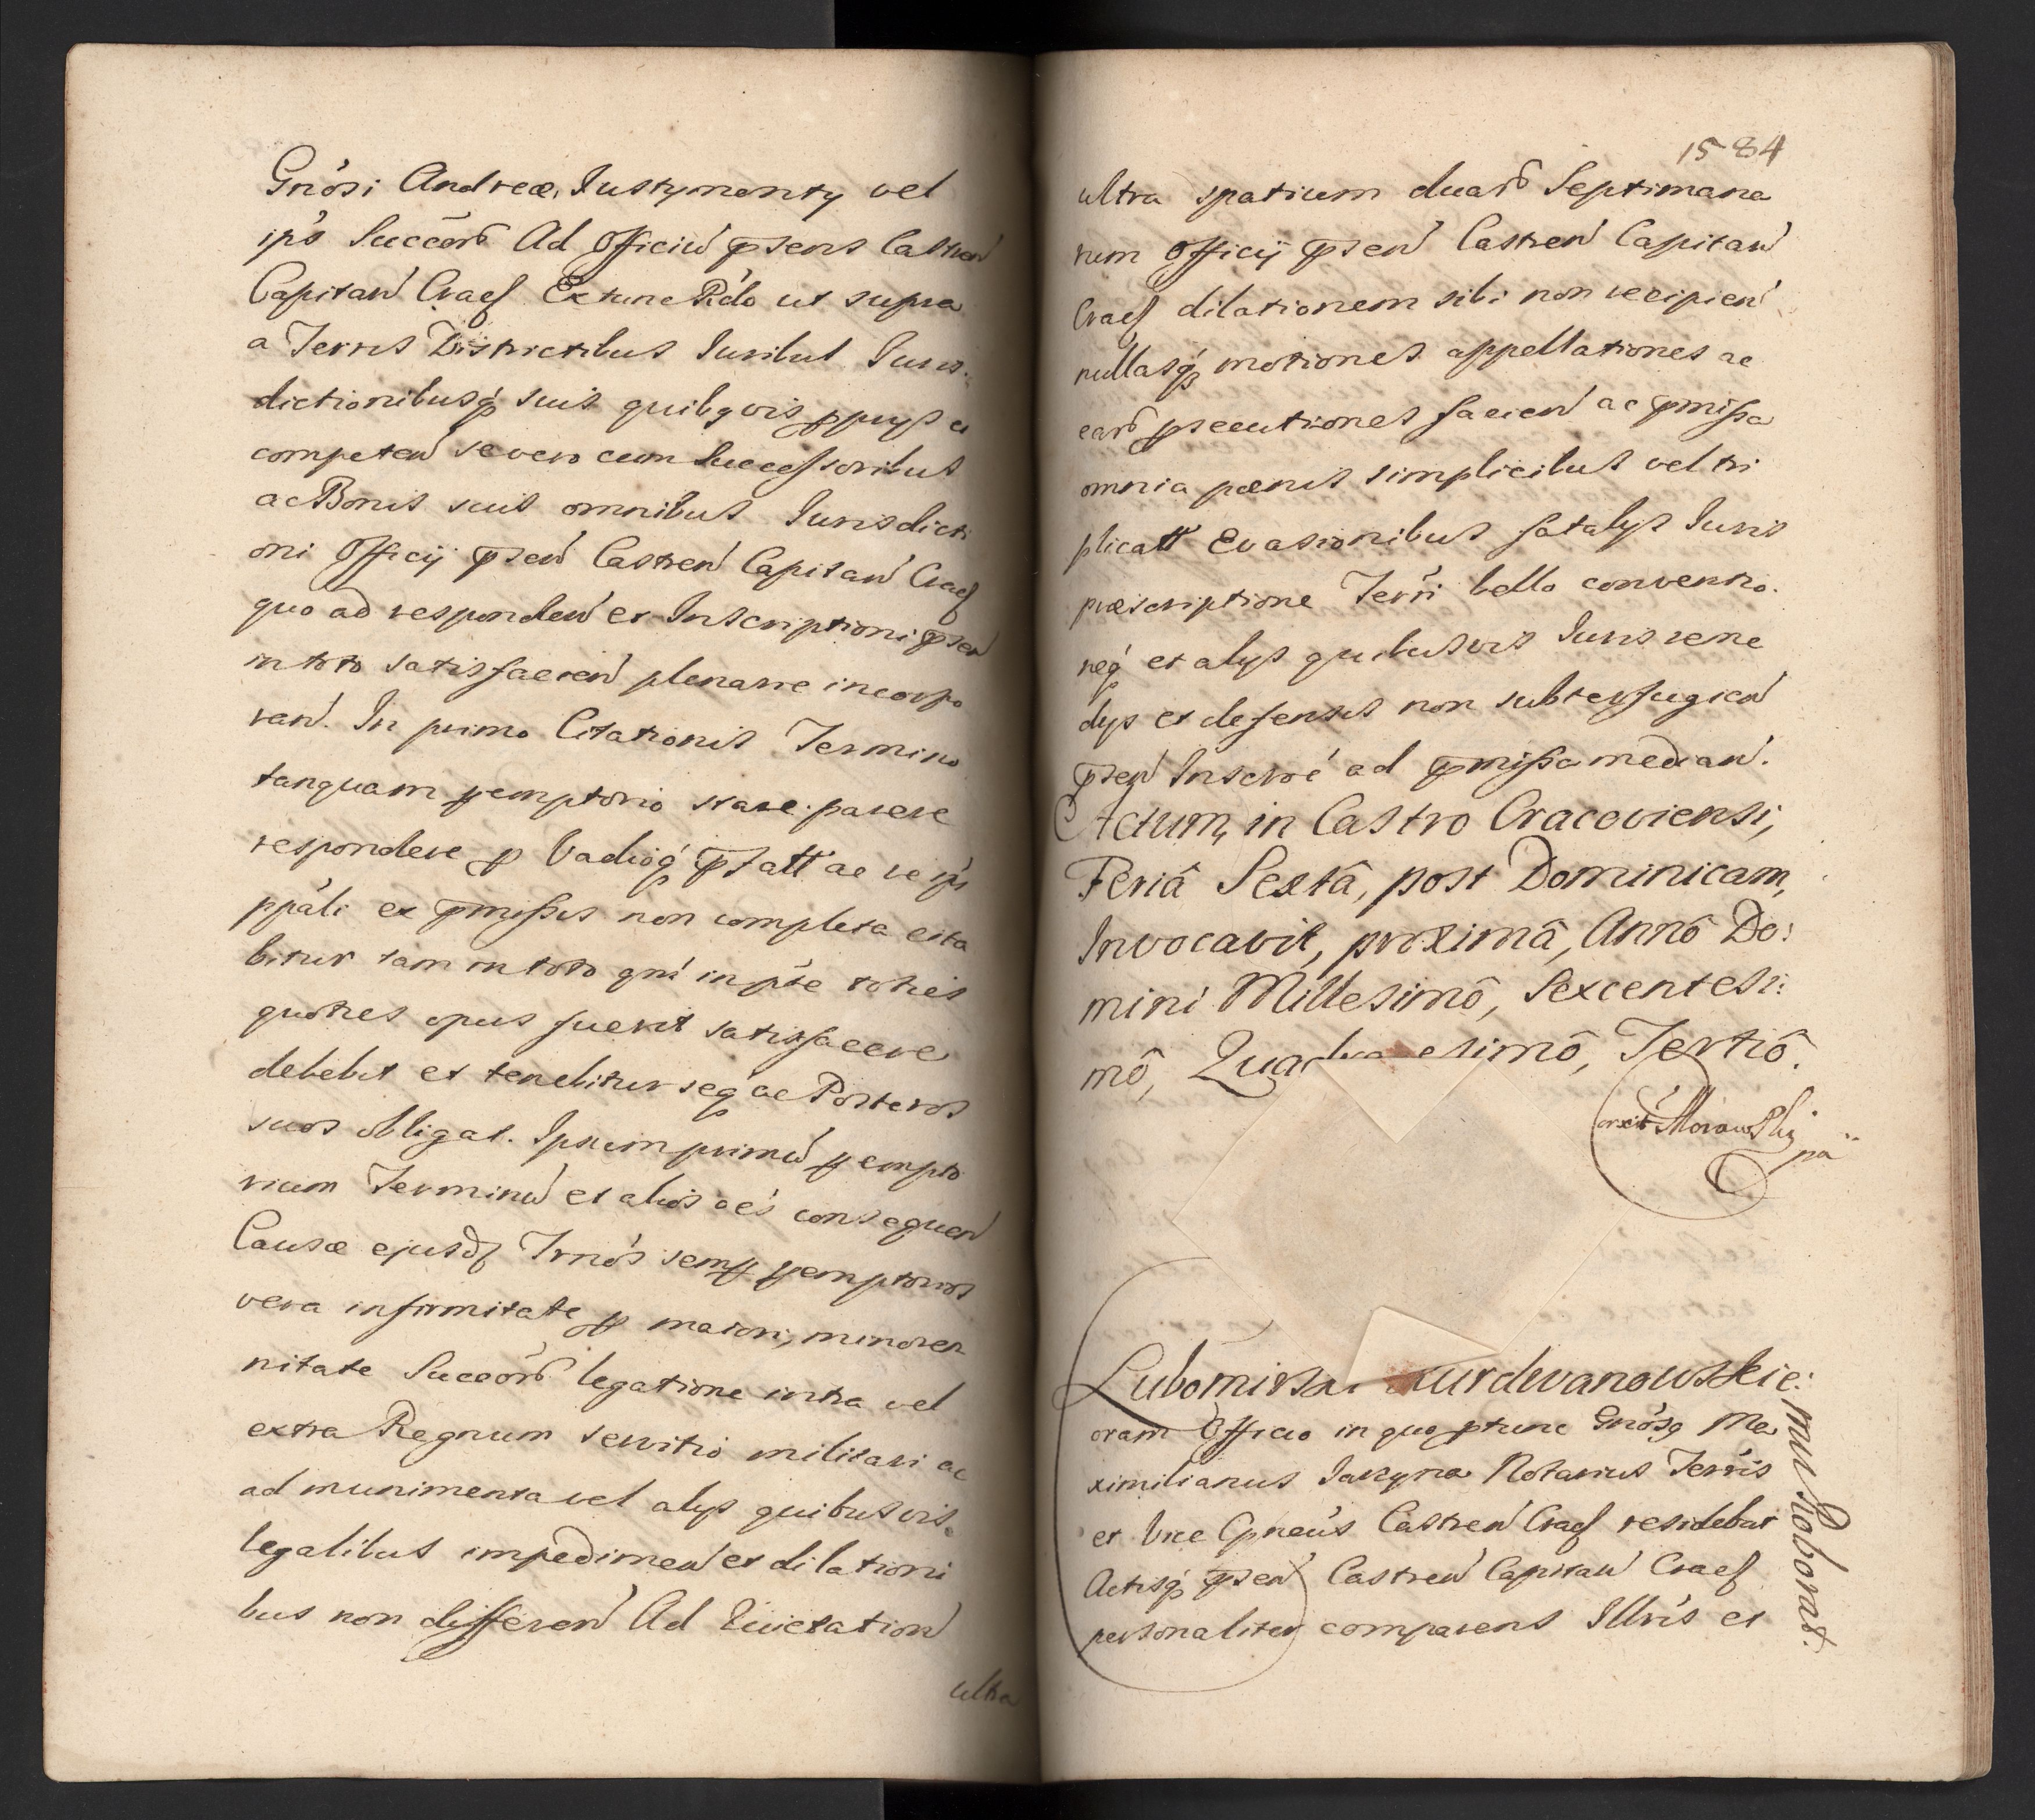 Gnosi Andreæ Iustymonty vel
ips Succõrb Ad Officiũ psens Castren
Capitan̄ Cracſ Ex tunc Rēdo ut supra
a Terris Districtibus Iuribus Juris.
dictionibusq́ suis quibqvis ppriys et
competen̄ se vero cum Successoribus
ac Bonis suis omnibus Iurisdicti
oni Officij psen̄ Castren̄ Capitan̄ Cracſ
quo ad responden̄ et Inscriptioni psen
in toto satisfacien̄ plenarie incorpo
ran̄. In primo Citationis Termino
tanquam peremptorio stare parere
respondere p Vadioq́ pfatt ac re ips
ppali ex pmissis non completa cita
bitur tam in toto qm̄ in pte toties
quoties opus fuerit satisfacere
debebit et tenebitur seq ac Posteros
suos obligat. Ipsum primũ pempto
rium Terminũ et alios oēs consequen
Causæ ejusdſ Trnos semp pemptorios
vera infirmitate p maiori, minoren
nitate Succõrb legatione intra vel
extra Regnum servitio militari ac
ad munimenta vel alys quibusvis
legalibus impedimen̄ et dilationi
bus non differen̄ Ad Quietation̄
ultra
1584
ultra spatium duarb Septimana
rum Officij psen̄ Castren̄ Capitan̄
Cracſ dilationem sibi non recipien̄
nullasq́ motiones appellationes ac
earb psecutiones facien̄ ac pmissa
omnia pænis simplicibus vel tri
plicatt Evasionibus fatalys Iuris
præscriptione Terri bello conventio.
neq́ et alys quibusvis Iuris reme
dys et defensis non subterfugien̄
psen̄ Inscrõe ad pmissa median̄.
Actum, in Castro Cracoviensi,
Feriâ Sextâ, post Dominicam,
Invocavit, proximâ, Annô Do:
mini Millesimô, Sexcentesi:
mô, Quadra esimô, Tertiô.
Morawski
Lubomirski Kurdwanowskie:
mu Roborat.
oram Officio in quo ptunc Gnosq Ma
ximilianus Iarzyna Notarius Terris
et Vice Cpneus Castren̄ Cracſ residebat
Actisq́ psen̄ Castren̄ Capitan̄ Cracſ
personaliter comparens Illris et